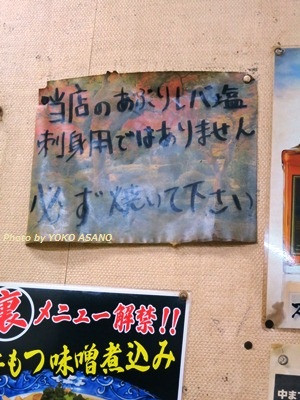 当店のあぶりレバ塩
刺身用ではありません
必ず焼いて下さい
Photo by YOKO ASANO
裏メニュー解禁!!
もつ味噌煮込み
中ま